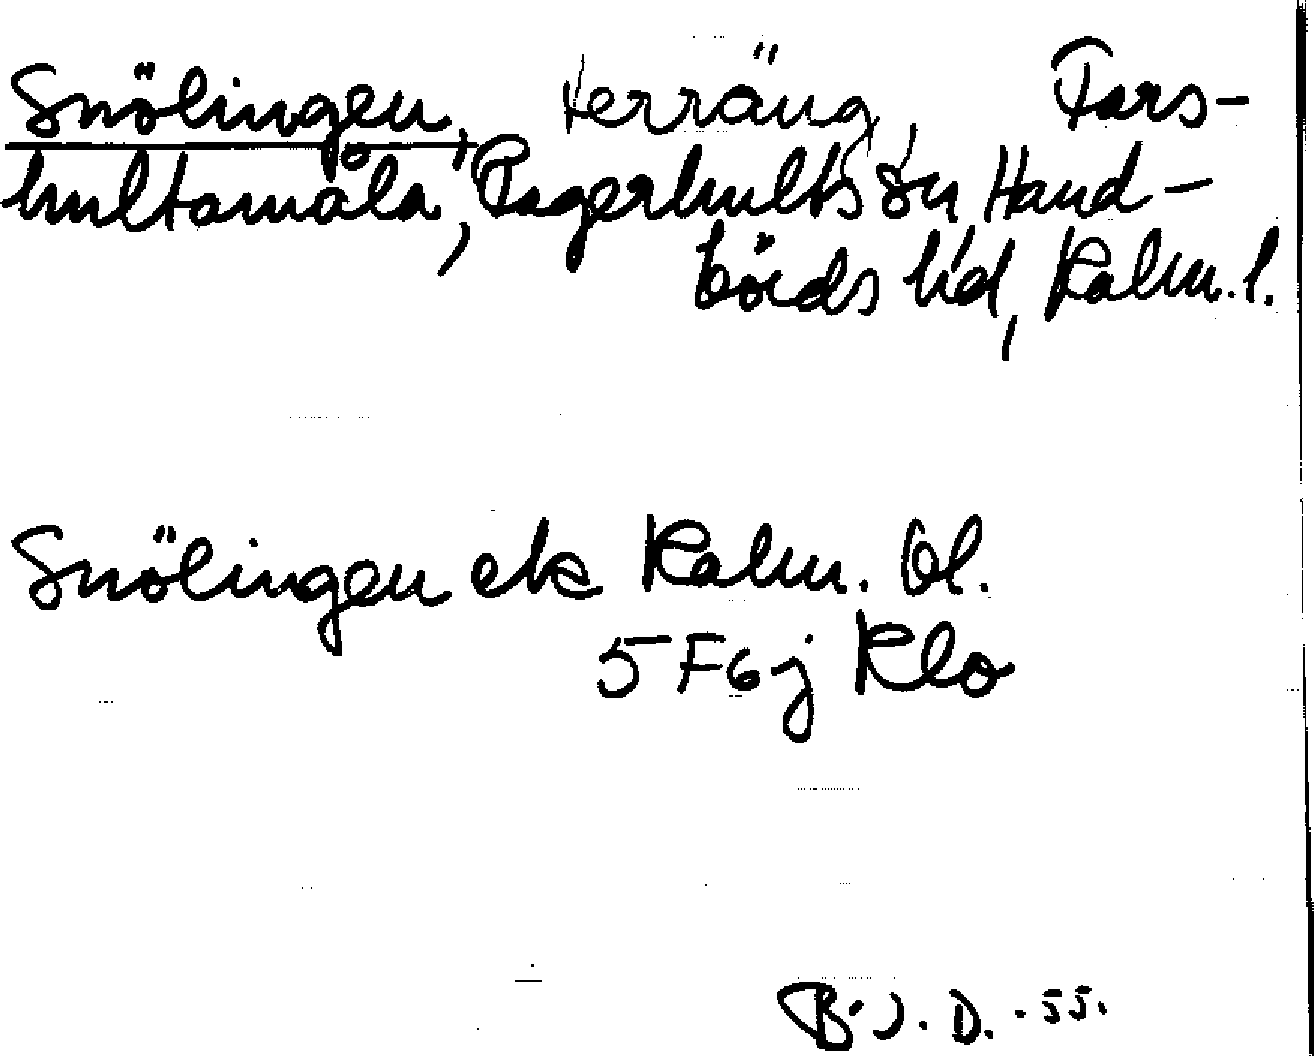 Snölingen, terräng, Fors-
hultamåla, Fagerhults sn Hand-
börds hd, Kalm. l.
Snölingen ek Kalm. bl.
5 F6j Klo
B. J. D. -55.